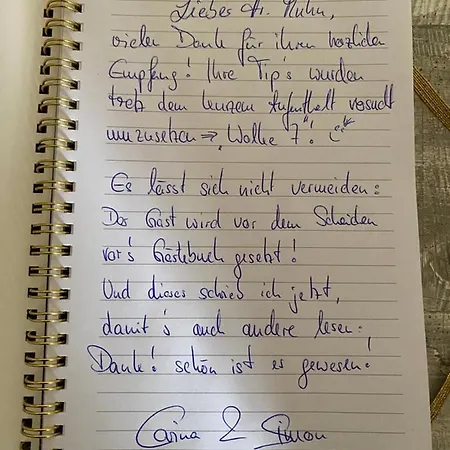 Liebes Fr. Kuhn,
vielen Dank für ihren herzlichen
Empfang! Ihre Tip's wurden
trotz dem kurzem Aufenthalt versucht
umzusetzen → „Wolke 7"!
Es lässt sich nicht vermeiden:
Der Gast wird vor dem Scheiden
vor's Gästebuch gesetzt!
Und dieses schrieb ich jetzt,
damit's auch andere lesen:
Danke! schön ist es gewesen!
Carina & Simon